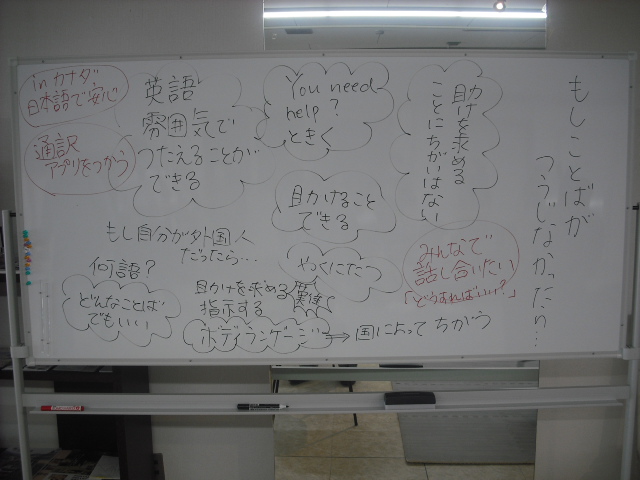 もしことばが
つうじなかったら…
助けを求める
ことにちがいはない
You need
help?
ときく
英語
雰囲気で
つたえることが
できる
in カナダ
日本語で安心
通訳
アプリをつかう
助けること
できる
もし自分が外国人
だったら…
やくにたつ
みんなで
話し合いたい
「どうすればいい?」
何語?
どんなことば
でもいい
助けを求める
指示する
ボディランゲージ → 国によって ちがう